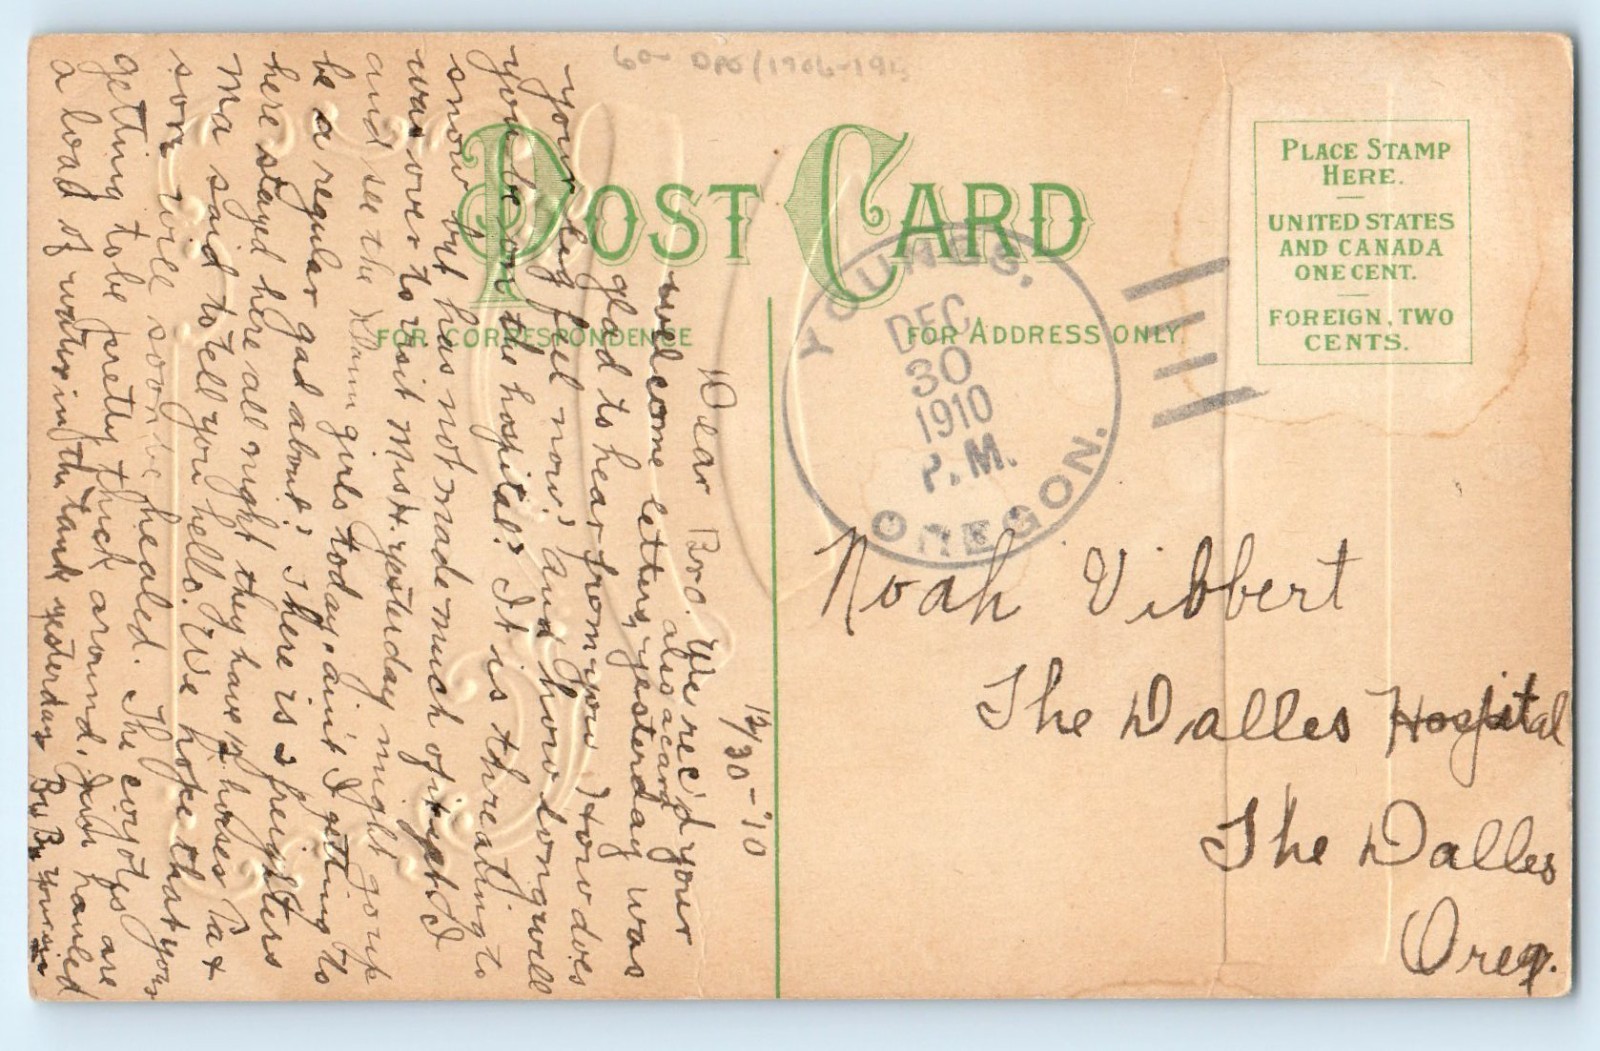 60- DPO (1906-191
POST CARD
FOR CORRESPONDENCE
FOR ADDRESS ONLY
PLACE STAMP
HERE.
UNITED STATES
AND CANADA
ONE CENT.
FOREIGN, TWO
CENTS.
YOUNGS.
DEC
30
1910
P.M.
OREGON.
Noah Vibbert
The Dalles Hospital
The Dalles
Oreg.
12/30-'10
Dear Bro. We rec'd your
also a card
wellcome letter, yesterday was
glad to hear from you, How does
your leg feel now? And how long will
you be on the hospital? It is threating to
snow but has not made much of it yet. I
was over to visit Miss H. yesterday
and see the Dunn girls today, night go up
be a regular gad about? ain't I getting to
here stayed here all night they have horses Pa &
There is 2 freighters
Ma said to tell you hello. We hope that your
son will soon be healed. The coyotes are
getting to be pretty thick around. Just hauled
a load of water in the tank yesterday By By Your